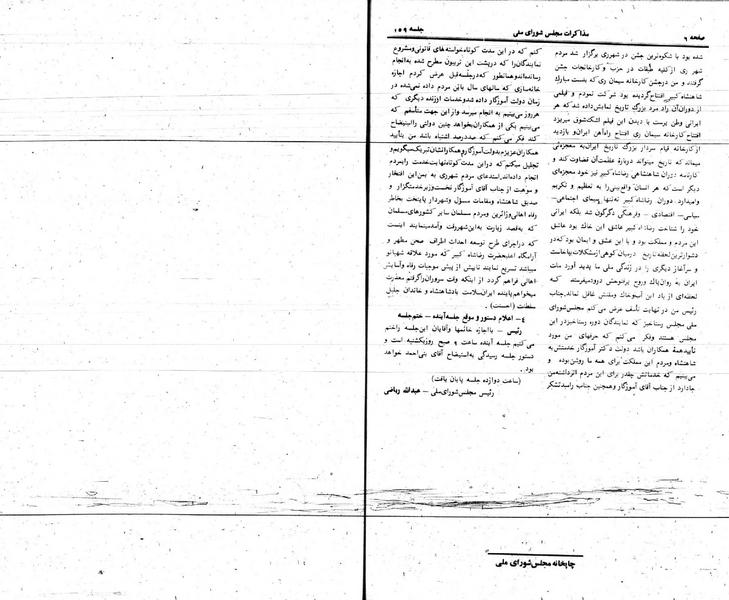 صفحه ۶
مذاکرات مجلس شورای ملی
جلسه ۱۵۹
شده بود با شکوه‌ترین جشن در شهرری برگزار شد مردم
شهر ری از کلیه طبقات در حزب و کارخانجات جشن
گرفتند و من در جشن کارخانه سیمان ری که بدست مبارک
شاهنشاه کبیر افتتاح گردیده بود شرکت نمودم و فیلمی
از دوران آن راد مرد بزرگ تاریخ نمایش داده شد که هر
ایرانی وطن پرست با دیدن این فیلم اشک شوق میریزد
افتتاح کارخانه سیمان ری افتتاح راه‌آهن ایران و بازدید
از کارخانه قیام سردار بزرگ تاریخ ایران به معجزه‌ئی
میماند که تاریخ میتواند درباره عظمت آن قضاوت کند و
کارنامه دوران شاهنشاهی رضاشاه کبیر نیز خود معجزه‌ای
دیگر است که هر انسان واقع‌بینی را به تعظیم و تکریم
وامیدارد. دوران رضاشاه کبیر نه‌تنها سیمای اجتماعی-
سیاسی- اقتصادی - و فرهنگی دگرگون شد بلکه ایرانی
خود را شناخت رضاشاه کبیر عاشق این خاک بود عاشق
این مردم و مملکت بود و با این عشق و ایمان بود که در
دشوارترین لحظه تاریخ درمیان کوهی از مشکلات بپاخاست
و سرآغاز دیگری را در زندگی ملی ما پدید آورد ملت
ایران به روان پاک و روح پرفتوحش درود میفرستد که
لحظه‌ای از یاد این آب و خاک و ملتش غافل نماند. جناب
رئیس من در نهایت تأسف عرض می‌کنم مجلس شورای
ملی مجلس رستاخیز که نمایندگان دوره رستاخیز در این
مجلس هستند و فکر می‌کنم که حرفهای من مورد
تأیید همه همکاران باشد دولت دکتر آموزگار خدمتش به
شاهنشاه و مردم این مملکت برای همه ما روشن بوده و
می‌بینیم که خدماتش چقدر برای این مردم اثر داشته من
جا دارد از جناب آقای آموزگار و همچنین جناب رامبد تشکر
کنم که در این مدت کوتاه خواسته‌های قانونی و مشروع
نمایندگان را که در پشت این تریبون مطرح شده به انجام
رسانده‌اند و همانطور که در جلسه قبل عرض کردم اجازه
خانه‌سازی که سالهای سال باین مردم داده نمی‌شد در
زمان دولت آموزگار داده شد و خدمات ارزنده دیگری که
هر روز می‌بینیم به انجام میرسد و از این جهت متأسفم که
می‌بینیم یکی از همکاران بخواهد چنین دولتی را استیضاح
کند فکر می‌کنم که صددرصد اشتباه باشد من بتأیید
همکاران عزیزم به دولت آموزگار و همکارانشان تبریک میگویم و
تجلیل میکنم که در این مدت کوتاه نهایت خدمت را بمردم
انجام داده‌اند. استدعای مردم شهرری به من این افتخار
و موهبت از جناب آقای آموزگار نخست‌وزیر خدمتگزار و
صدیق شاهنشاه و مقامات مسؤل و شهردار پایتخت بخاطر
رفاه اهالی و زائرین و مردم مسلمان سایر کشورهای مسلمان
که به قصد زیارت به این شهر رفت و آمد مینمایند اینست
که در اجرای طرح توسعه احداث اطراف صحن مطهر و
آرامگاه اعلیحضرت رضاشاه کبیر که مورد علاقه شهبانو
میباشد تسریع نمایند تا بیش از پیش موجبات رفاه و آسایش
اهالی فراهم گردد از اینکه وقت سروران را گرفتم معذرت
میخواهم پاینده ایران سلامت باد شاهنشاه و خاندان جلیل
سلطنت (احسنت).
۴ - اعلام دستور و موقع جلسه آینده - ختم جلسه
رئیس - با اجازه خانمها و آقایان این جلسه را ختم
می‌کنیم جلسه آینده ساعت ۹ صبح روز یکشنبه است و
دستور جلسه رسیدگی به استیضاح آقای بنی‌احمد خواهد
بود.
(ساعت دوازده جلسه پایان یافت)
رئیس مجلس شورای ملی - عبدالله ریاضی
چاپخانه مجلس شورای ملی